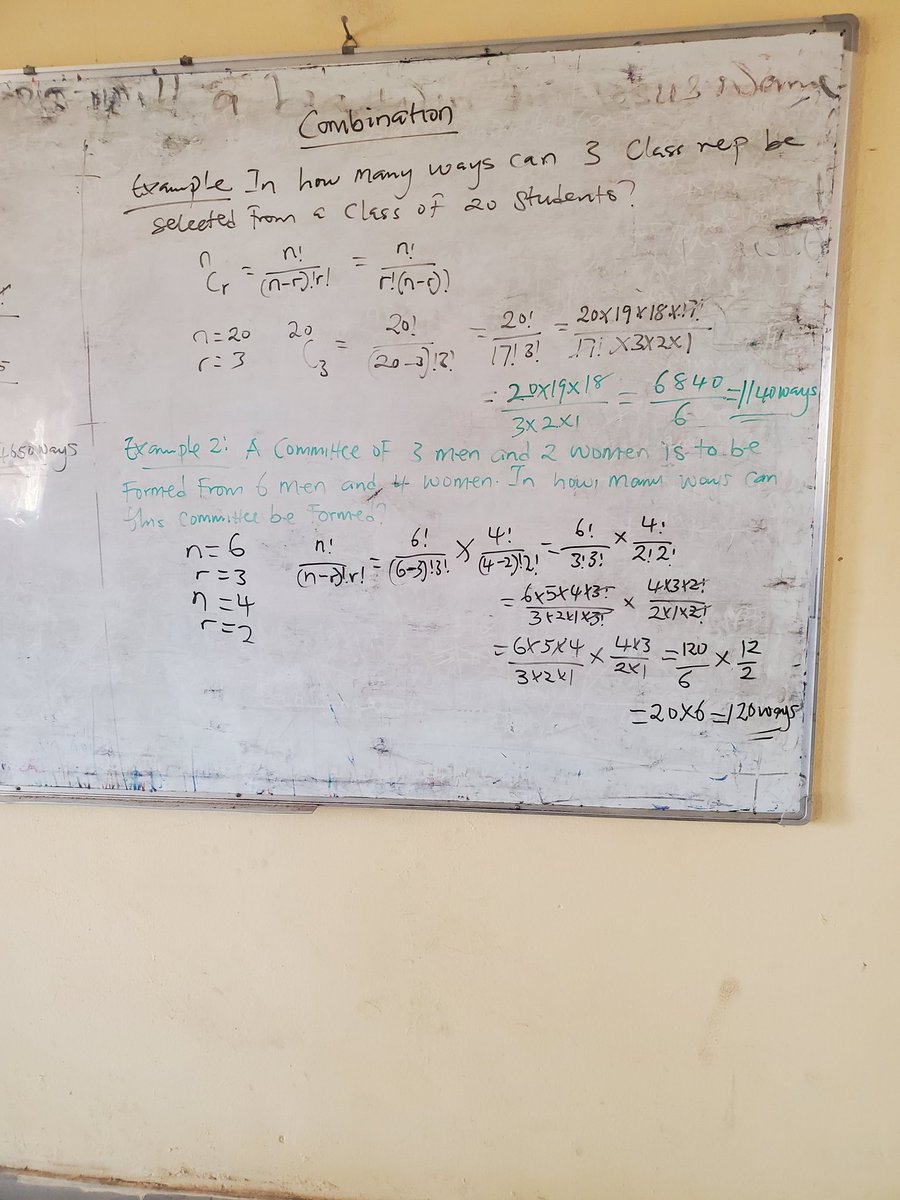 Combination
Example In how many ways can 3 Class rep be
selected from a class of 20 students?
nCr = n!/(n-r)!r! = n!/r!(n-r)!
n=20 20C3 = 20!/(20-3)!3! = 20!/17!3! = 20×19×18×17!/17!×3×2×1
r=3
= 20×19×18/3×2×1 = 6840/6 = 1140ways
4650ways
Example 2: A Committee of 3 men and 2 women is to be
formed from 6 men and 4 women. In how many ways can
this committee be formed?
n=6 n!/(n-r)!r! = 6!/(6-3)!3! × 4!/(4-2)!2! = 6!/3!3! × 4!/2!2!
r=3
n=4 = 6×5×4×3!/3×2×1×3! × 4×3×2!/2×1×2!
r=2
= 6×5×4/3×2×1 × 4×3/2×1 = 120/6 × 12/2
=20×6=120ways